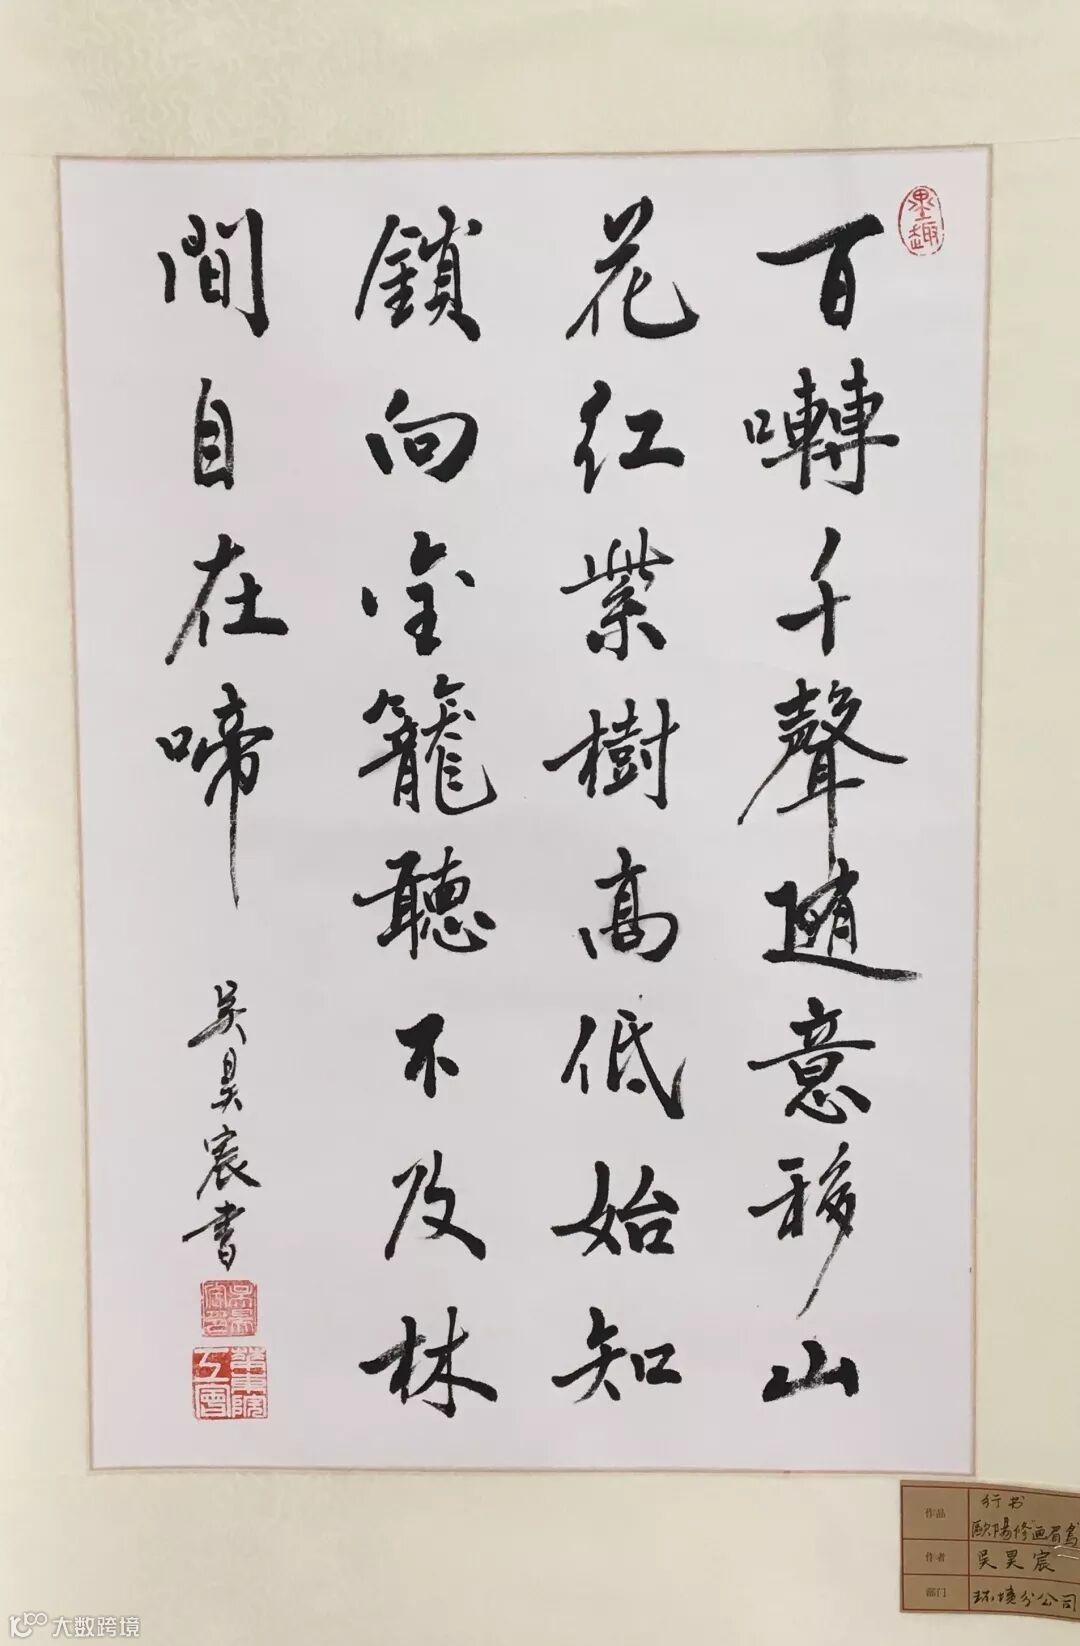 墨趣
百囀千聲隨意移山
花红紫樹高低始知
鎖向金籠聽不及林
間自在啼
吴昊宸書
華東院工會
作品 行书
歐陽修"画眉鸟
作者 吴昊宸
部门 环境分公司
大数跨境